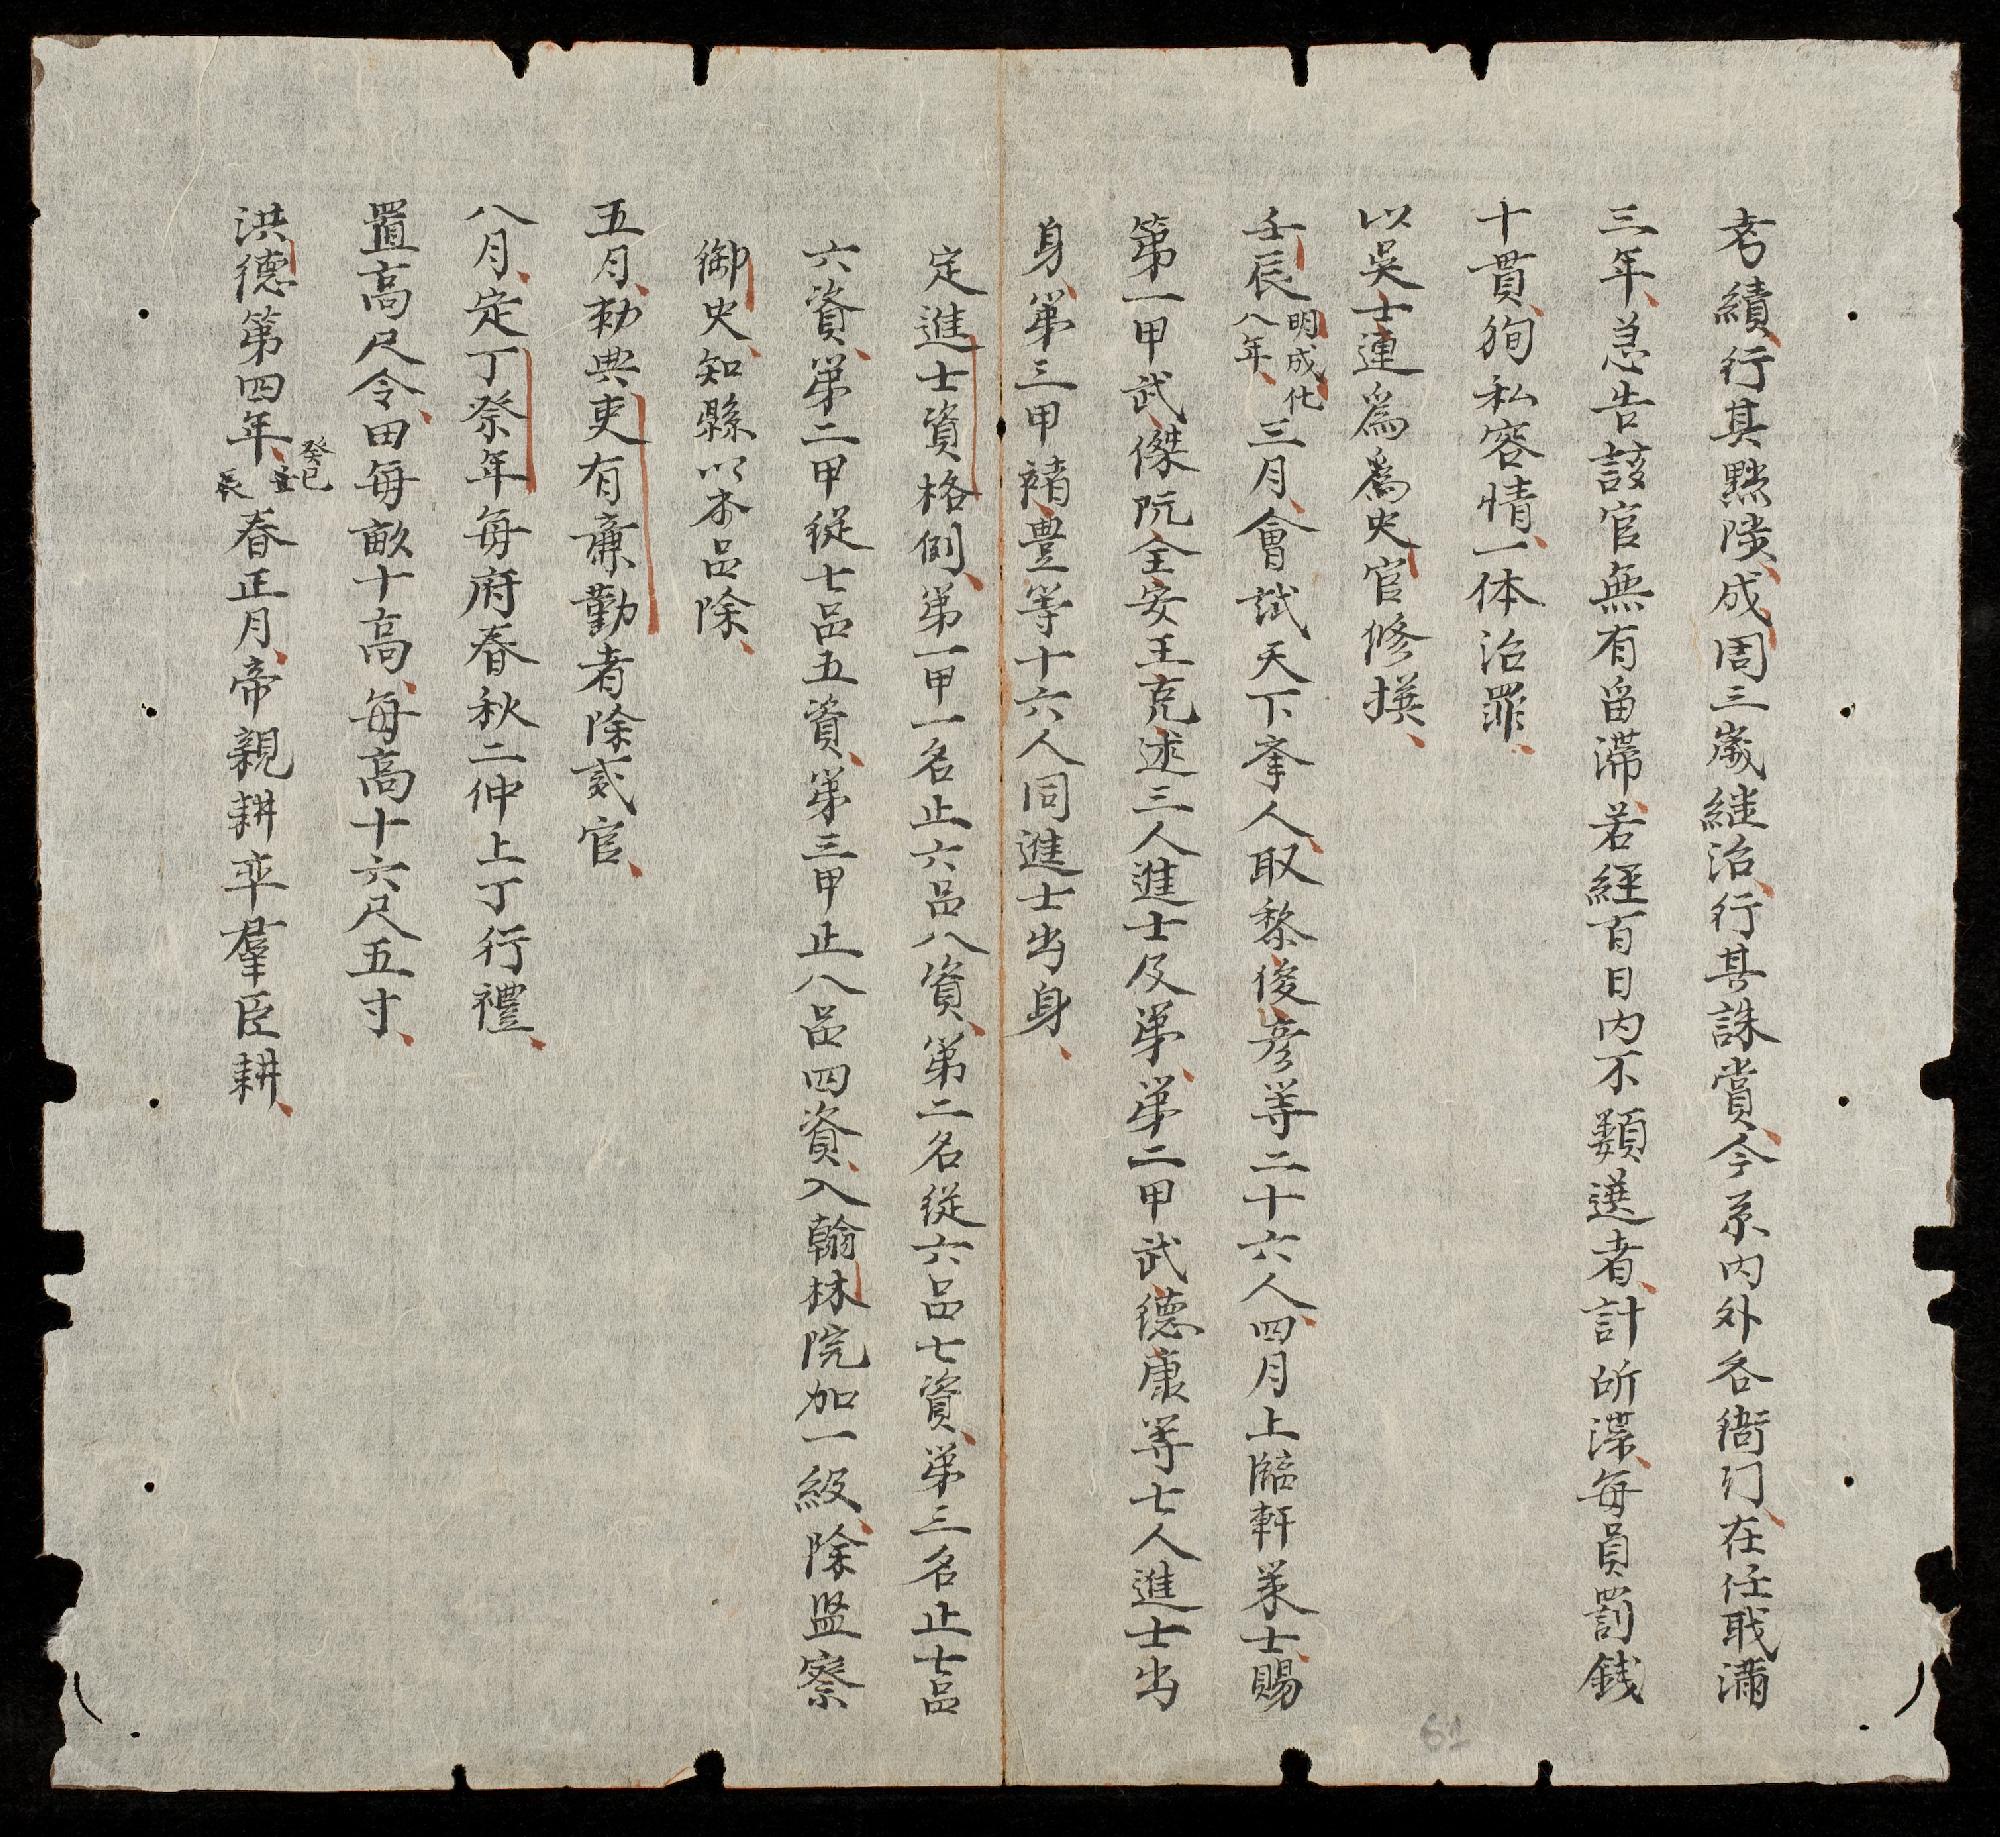 考績、行其黜陟、成周三歲継治、行其誅賞、今系内外各衙门、在任职滿
三年、急告該官無有留滯、若經百日内不類選者、計所滯、每員罰銭
十貫、徇私容情、一体治罪、
以吳士連爲爲史官修撰、
壬辰明成化八年、三月、會試天下举人、取黎俊彦等二十六人、四月上臨軒策士、賜
第一甲武傑阮全安王克述三人進士及第、第二甲武德康等七人進士出
身、第三甲褚豊等十六人同進士出身、
定進士資格例、第一甲一名止六品八資、第二名從六品七資、第三名止七品
六資、第二甲從七品五資、第三甲止八品四資、入翰林院加一級、除监察
御史、知縣以本品除、
五月、勅典吏有亷勤者除貳官、
八月、定丁祭年每府春秋二仲上丁行禮、
置高尺令、田每畝十高、每高十六尺五寸、
洪德第四年、癸巳春正月、帝親耕率羣臣耕、